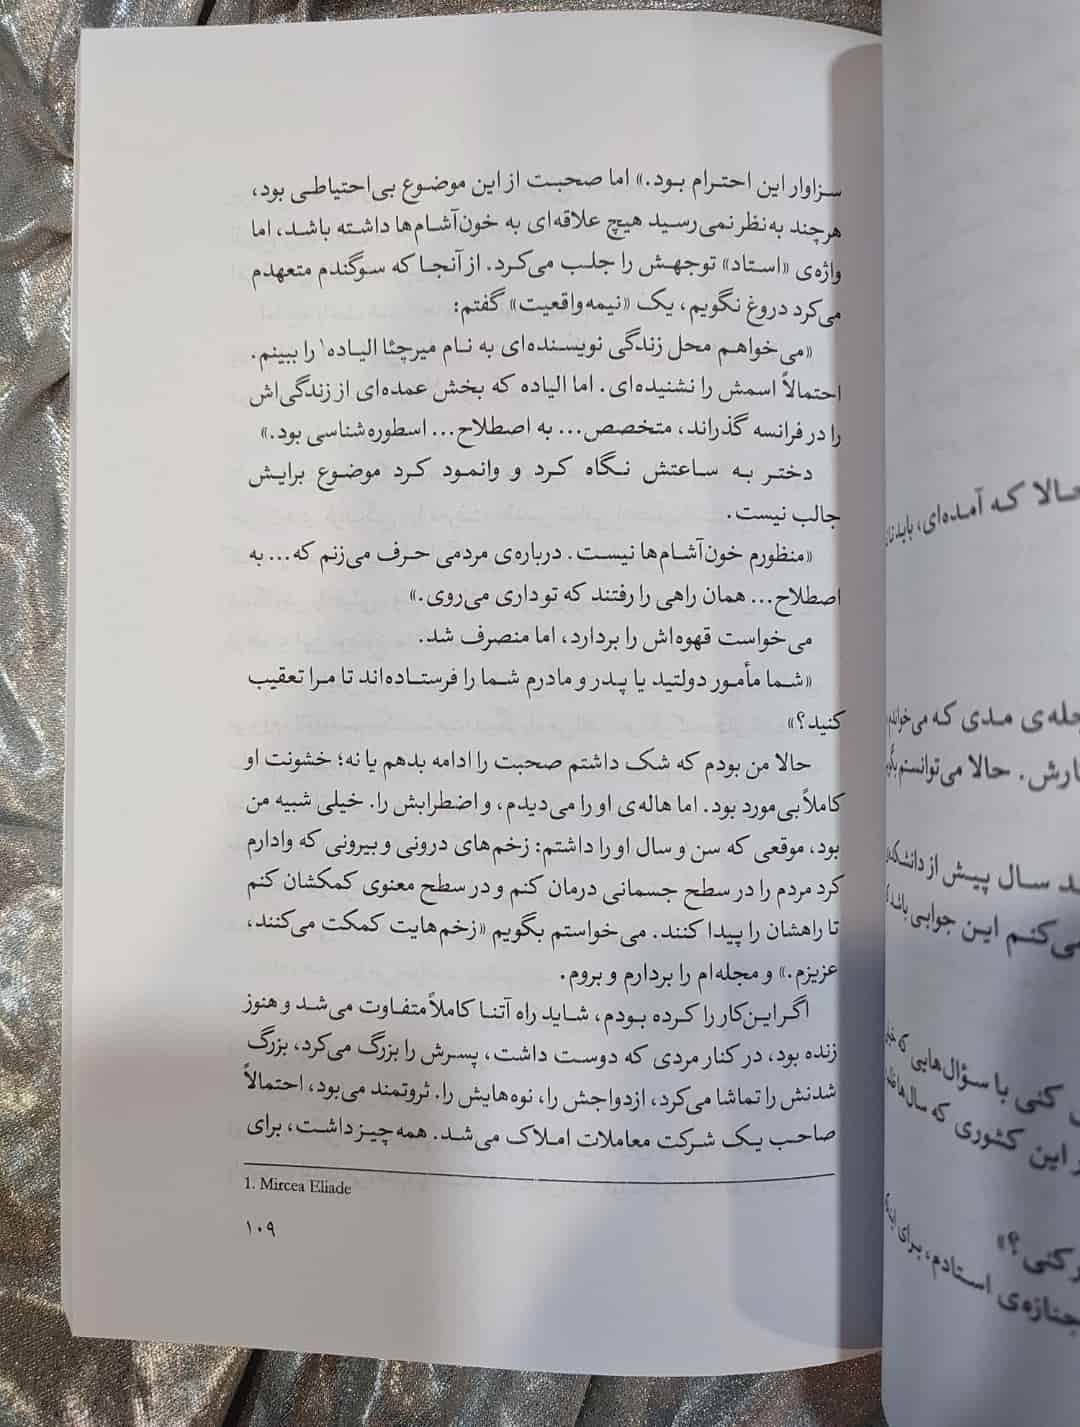 سزاوار این احترام بود.» اما صحبت از این موضوع بی‌احتیاطی بود،
هرچند به‌نظر نمی‌رسید هیچ علاقه‌ای به خون‌آشام‌ها داشته باشد، اما
واژه‌ی «استاد» توجهش را جلب می‌کرد. از آنجا که سوگندم متعهدم
می‌کرد دروغ نگویم، یک «نیمه‌واقعیت» گفتم:
«می‌خواهم محل زندگی نویسنده‌ای به نام میرچئا الیاده۱ را ببینم.
احتمالاً اسمش را نشنیده‌ای. اما الیاده که بخش عمده‌ای از زندگی‌اش
را در فرانسه گذراند، متخصص... به اصطلاح... اسطوره‌شناسی بود.»
دختر به ساعتش نگاه کرد و وانمود کرد موضوع برایش
جالب نیست.
«منظورم خون‌آشام‌ها نیست. درباره‌ی مردمی حرف می‌زنم که... به
اصطلاح... همان راهی را رفتند که تو داری می‌روی.»
می‌خواست قهوه‌اش را بردارد، اما منصرف شد.
«شما مأمور دولتید یا پدر و مادرم شما را فرستاده‌اند تا مرا تعقیب
کنید؟»
حالا من بودم که شک داشتم صحبت را ادامه بدهم یا نه؛ خشونت او
کاملاً بی‌مورد بود. اما هاله‌ی او را می‌دیدم، و اضطرابش را. خیلی شبیه من
بود، موقعی که سن و سال او را داشتم: زخم‌های درونی و بیرونی که وادارم
کرد مردم را در سطح جسمانی درمان کنم و در سطح معنوی کمکشان کنم
تا راهشان را پیدا کنند. می‌خواستم بگویم «زخم‌هایت کمکت می‌کنند،
عزیزم.» و مجله‌ام را بردارم و بروم.
اگر این‌کار را کرده بودم، شاید راه آتنا کاملاً متفاوت می‌شد و هنوز
زنده بود، در کنار مردی که دوست داشت، پسرش را بزرگ می‌کرد، بزرگ
شدنش را تماشا می‌کرد، ازدواجش را، نوه‌هایش را. ثروتمند می‌بود، احتمالاً
صاحب یک شرکت معاملات املاک می‌شد. همه‌چیز داشت، برای
1. Mircea Eliade
۱۰۹
حالا که آمده‌ای، باید
مدی که می‌خواندم
حالا می‌توانستم
سال پیش از
می‌کنم این جوابی باشد
کنی با سؤال‌هایی که
این کشوری که سال‌ها
کنی؟»
جنازه‌ی استادم، برای